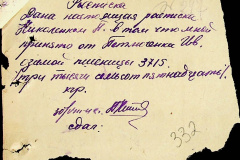 Расписка
Дана настоящая расписка
Николенко Н. в том что мной
принято от Петженка Ив.
озимой пшеницы 3715.
(три тысяч семьсот пятнадцать)
кгр.
принял
сдал:
332